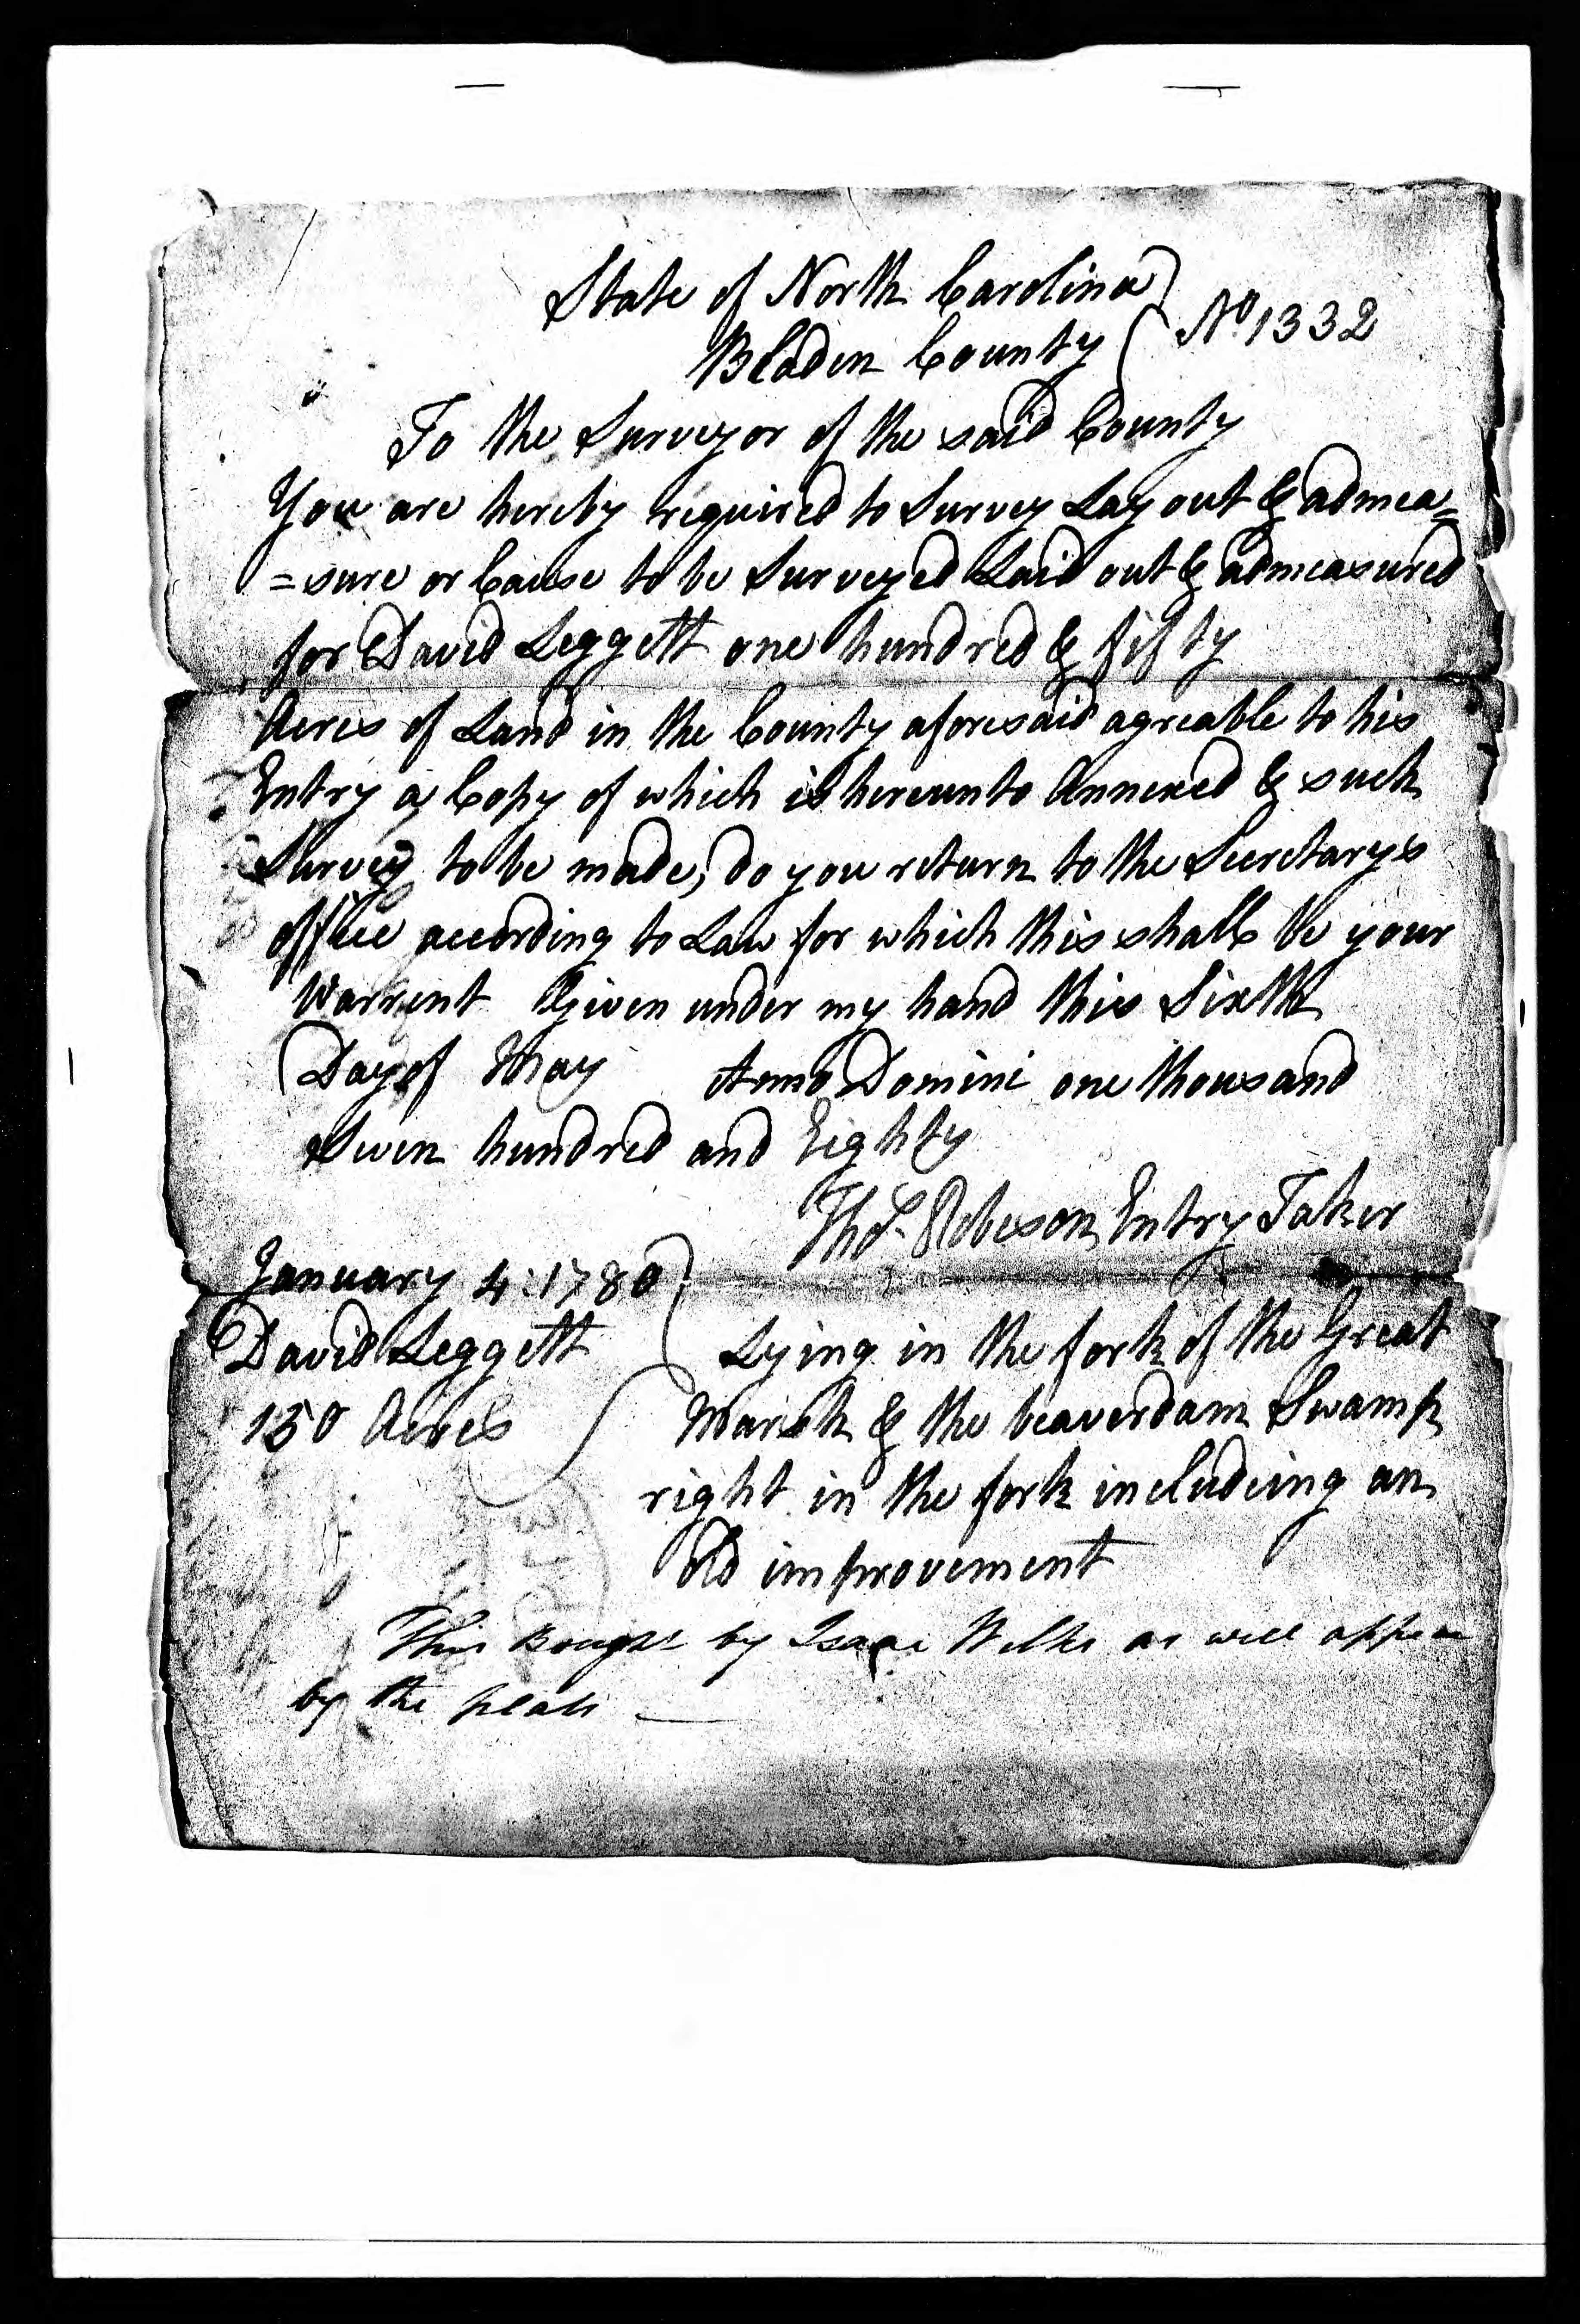 State of North Carolina
Bladen County } No. 1332
To the Surveyor of the said County
You are hereby required to Survey Lay out & admea=
=sure or Cause to be Surveyed Laid out & admeasured
for David Leggett one hundred & fifty
Acres of Land in the County aforesaid agreable to his
Entry a Copy of which is hereunto Annexed & such
Survey to be made, do you return to the Secretarys
office according to Law for which this shall be your
Warrent Given under my hand this Sixth
Day of May Anno Domini one thousand
Seven hundred and Eighty
Thos. Robeson Entry Taker
January 4: 1780
David Leggett } Lying in the fork of the Great
150 Acres Marsh & the beaverdam Swamp
right in the fork includeing an
old improvement
This Bought by Isaac as will appear
by the plats